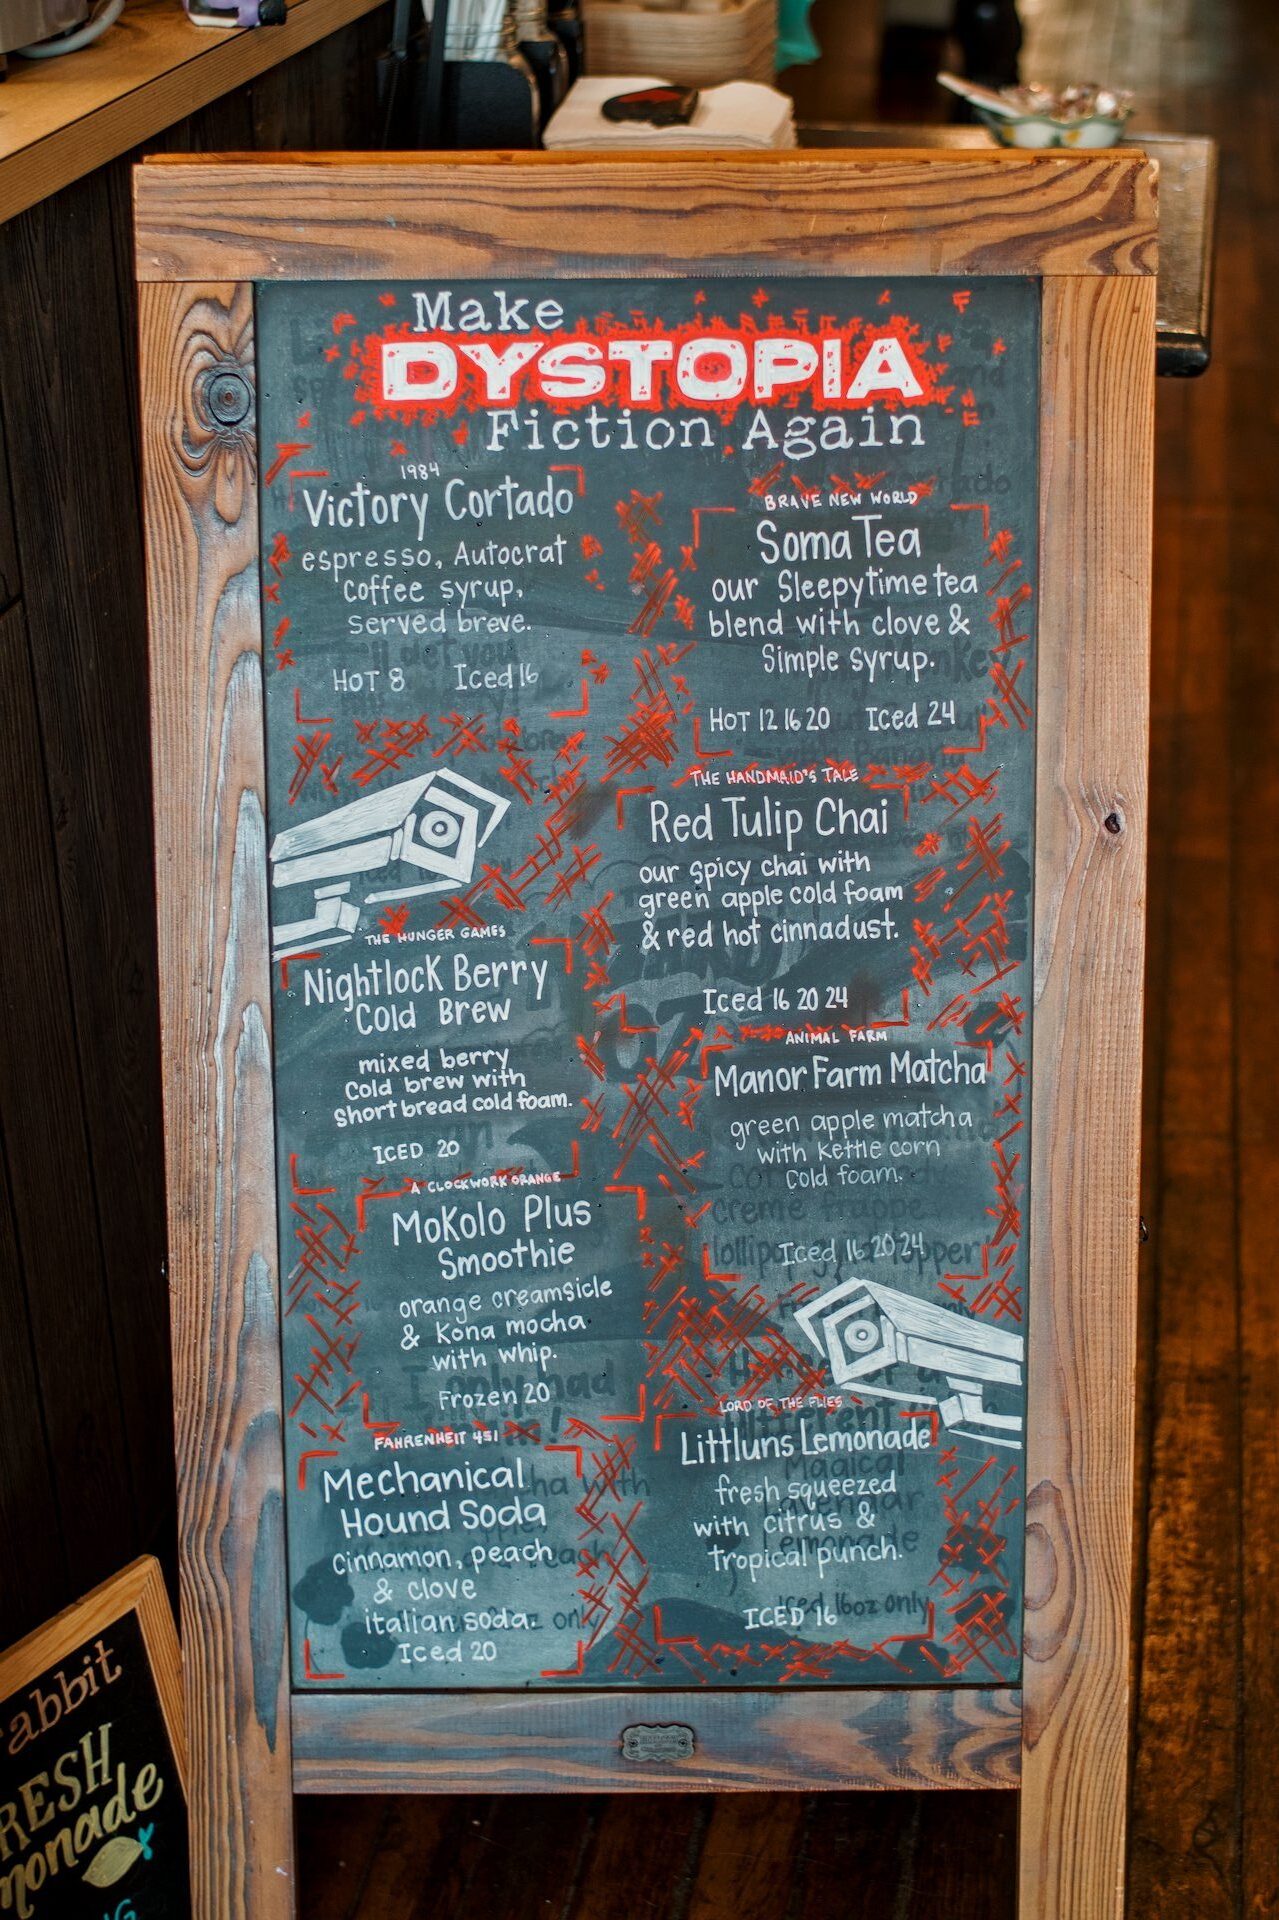 Make
DYSTOPIA
Fiction Again
1984
Victory Cortado
espresso, Autocrat
Coffee syrup,
served breve.
HOT 8 Iced 16
THE HUNGER GAMES
Nightlock Berry
Cold Brew
mixed berry
Cold brew with
Short bread cold foam.
ICED 20
A CLOCKWORK ORANGE
Mokolo Plus
Smoothie
orange creamsicle
& Kona mocha
with whip.
Frozen 20
FAHRENHEIT 451
Mechanical
Hound Soda
cinnamon, peach
& clove
italian soda.
Iced 20
BRAVE NEW WORLD
Soma Tea
our Sleepytime tea
blend with clove &
Simple syrup.
HOT 12 16 20 Iced 24
THE HANDMAID'S TALE
Red Tulip Chai
our spicy chai with
green apple cold foam
& red hot cinnadust.
Iced 16 20 24
ANIMAL FARM
Manor Farm Matcha
green apple matcha
with kettle corn
Cold foam.
Iced 16 20 24
LORD OF THE FLIES
Littluns Lemonade
fresh squeezed
with citrus &
tropical punch.
ICED 16
abbit
RESH
monade